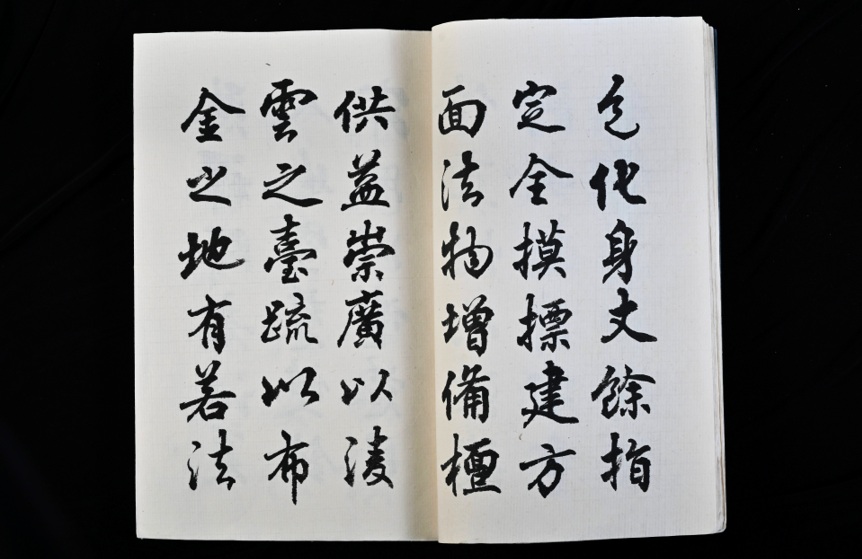 乞化身丈餘指
定全摸標建方
面法物增備檀
供益崇廣以淩
雲之臺疏以布
金之地有若法